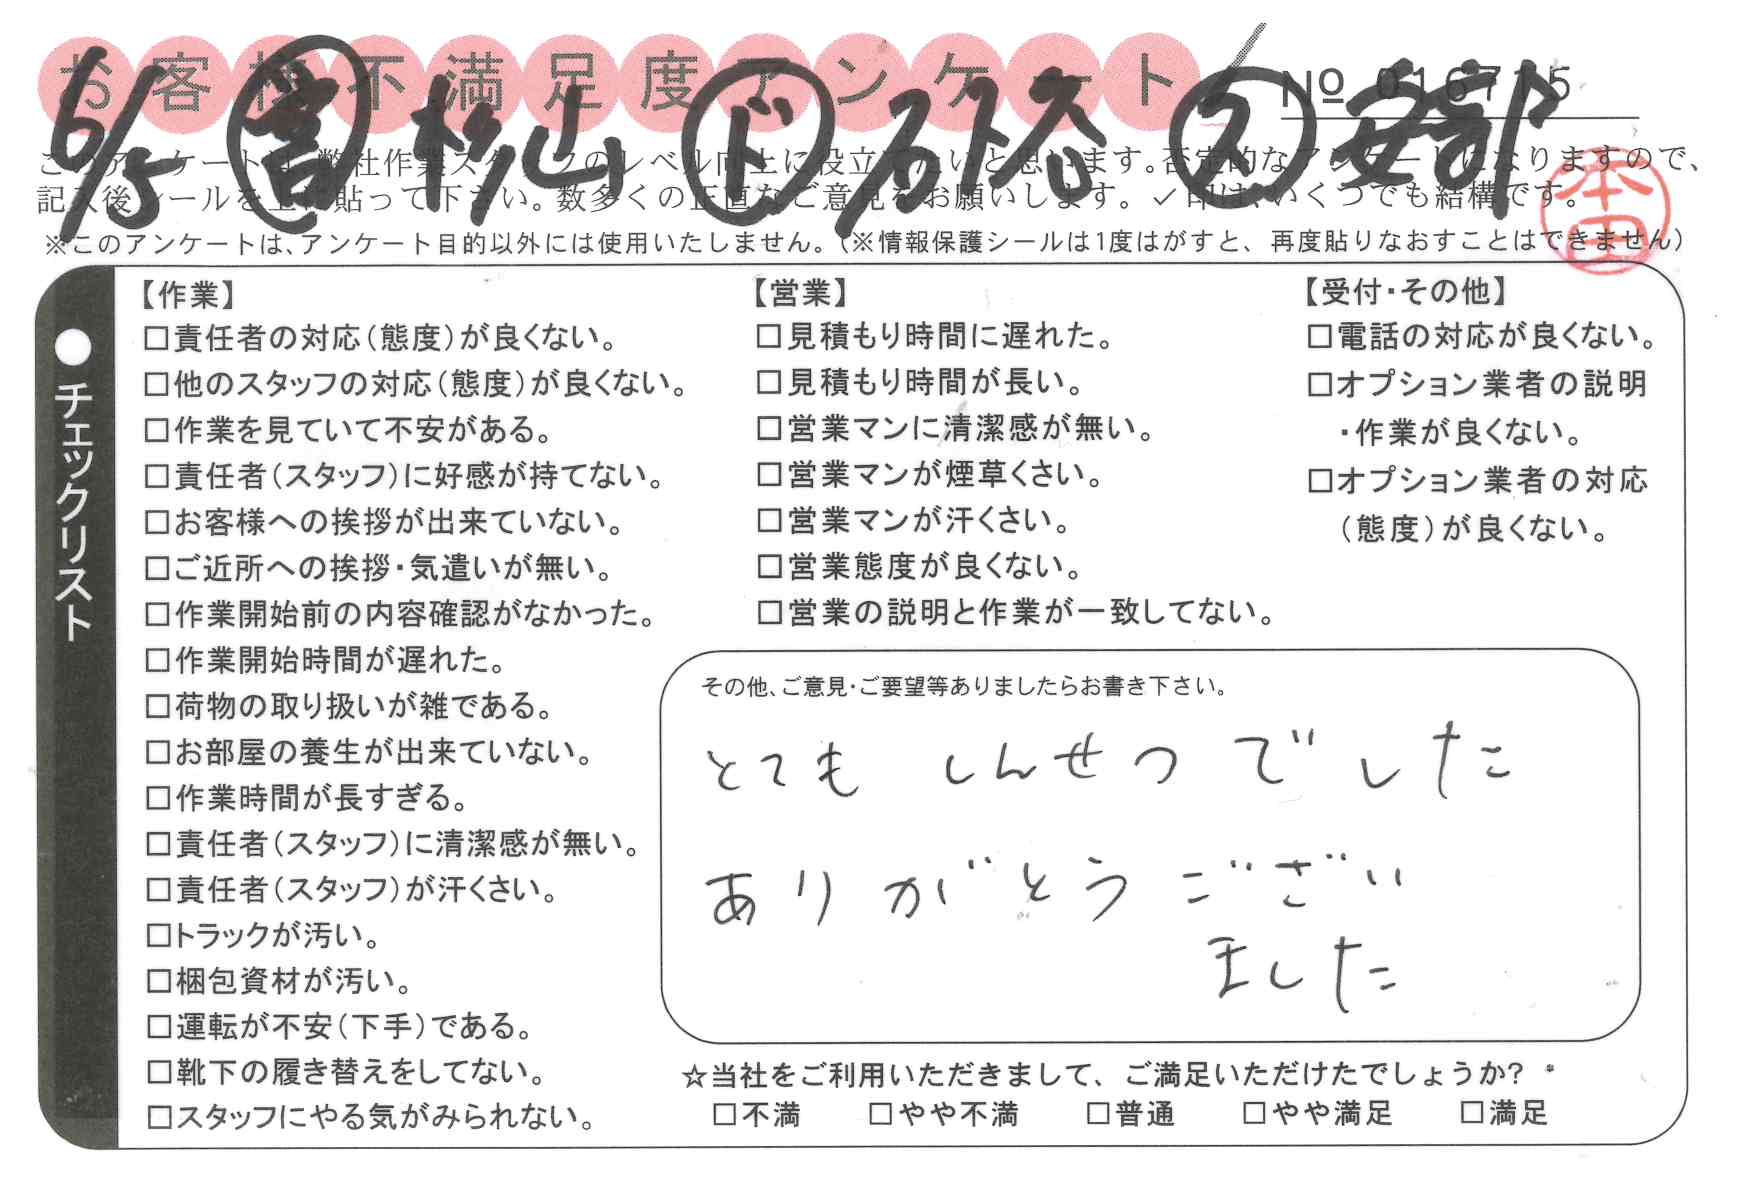 お客様不満足度アンケート
№ 016715
6/5 営 杉山 ド 石松 ス 安部
このアンケートは、弊社作業スタッフのレベル向上に役立てたいと思います。否定的なアンケートになりますので、
記入後シールを上に貼って下さい。数多くの正直なご意見をお願いします。✓印は、いくつでも結構です。
本田
※このアンケートは、アンケート目的以外には使用いたしません。(※情報保護シールは1度はがすと、再度貼りなおすことはできません)
●チェックリスト
【作業】
□責任者の対応(態度)が良くない。
□他のスタッフの対応(態度)が良くない。
□作業を見ていて不安がある。
□責任者(スタッフ)に好感が持てない。
□お客様への挨拶が出来ていない。
□ご近所への挨拶・気遣いが無い。
□作業開始前の内容確認がなかった。
□作業開始時間が遅れた。
□荷物の取り扱いが雑である。
□お部屋の養生が出来ていない。
□作業時間が長すぎる。
□責任者(スタッフ)に清潔感が無い。
□責任者(スタッフ)が汗くさい。
□トラックが汚い。
□梱包資材が汚い。
□運転が不安(下手)である。
□靴下の履き替えをしてない。
□スタッフにやる気がみられない。
【営業】
□見積もり時間に遅れた。
□見積もり時間が長い。
□営業マンに清潔感が無い。
□営業マンが煙草くさい。
□営業マンが汗くさい。
□営業態度が良くない。
□営業の説明と作業が一致してない。
【受付・その他】
□電話の対応が良くない。
□オプション業者の説明
・作業が良くない。
□オプション業者の対応
(態度)が良くない。
その他、ご意見・ご要望等ありましたらお書き下さい。
とても しんせつ でした
ありがとうござい
ました
☆当社をご利用いただきまして、ご満足いただけたでしょうか?
□不満 □やや不満 □普通 □やや満足 □満足